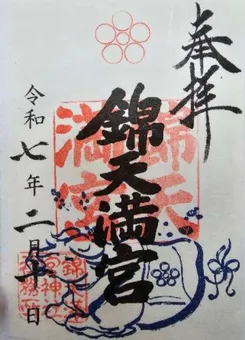 奉拝
錦天満宮
令和七年二月十一日
錦天
満宮